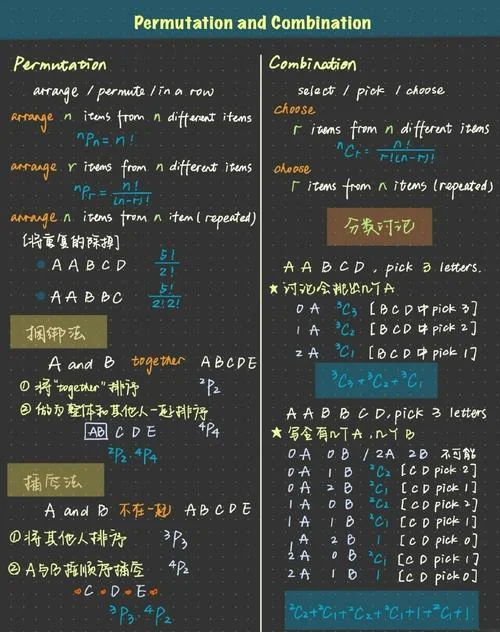 Permutation and Combination
Permutation
arrange / permute / in a row
arrange n items from n different items
ⁿPₙ = n!
arrange r items from n different items
ⁿPᵣ = n!/(n-r)!
arrange n items from n item (repeated)
[将重复的除掉]
A A B C D 5!/2!
A A B B C 5!/2!2!
捆绑法
A and B together A B C D E
① 将"together"排序 ²P₂
② 做为整体和其他人一起排序 ⁴P₄
AB C D E
²P₂ · ⁴P₄
插座法
A and B 不在一起 A B C D E
① 将其他人排序 ³P₃
② A与B按顺序插座 ⁴P₂
C · D · E
³P₃ · ⁴P₂
Combination
select / pick / choose
choose
r items from n different items
ⁿCᵣ = n!/r!(n-r)!
choose
r items from n items (repeated)
分类讨论
A A B C D, pick 3 letters.
★ 讨论会挑出几个A
0 A ³C₃ [B C D 中 pick 3]
1 A ³C₂ [B C D 中 pick 2]
2 A ³C₁ [B C D 中 pick 1]
³C₃ + ³C₂ + ³C₁
A A B B C D, pick 3 letters
★ 写会有几个A, 几个B
0 A 0 B / 2A 2B 不可能
0 A 1 B ²C₂ [C D pick 2]
0 A 2 B ²C₁ [C D pick 1]
1 A 0 B ²C₂ [C D pick 2]
1 A 1 B ²C₁ [C D pick 1]
1 A 2 B 1 [C D pick 0]
2 A 0 B ²C₁ [C D pick 1]
2 A 1 B 1 [C D pick 0]
²C₂+²C₁+²C₂+²C₁+1+²C₁+1